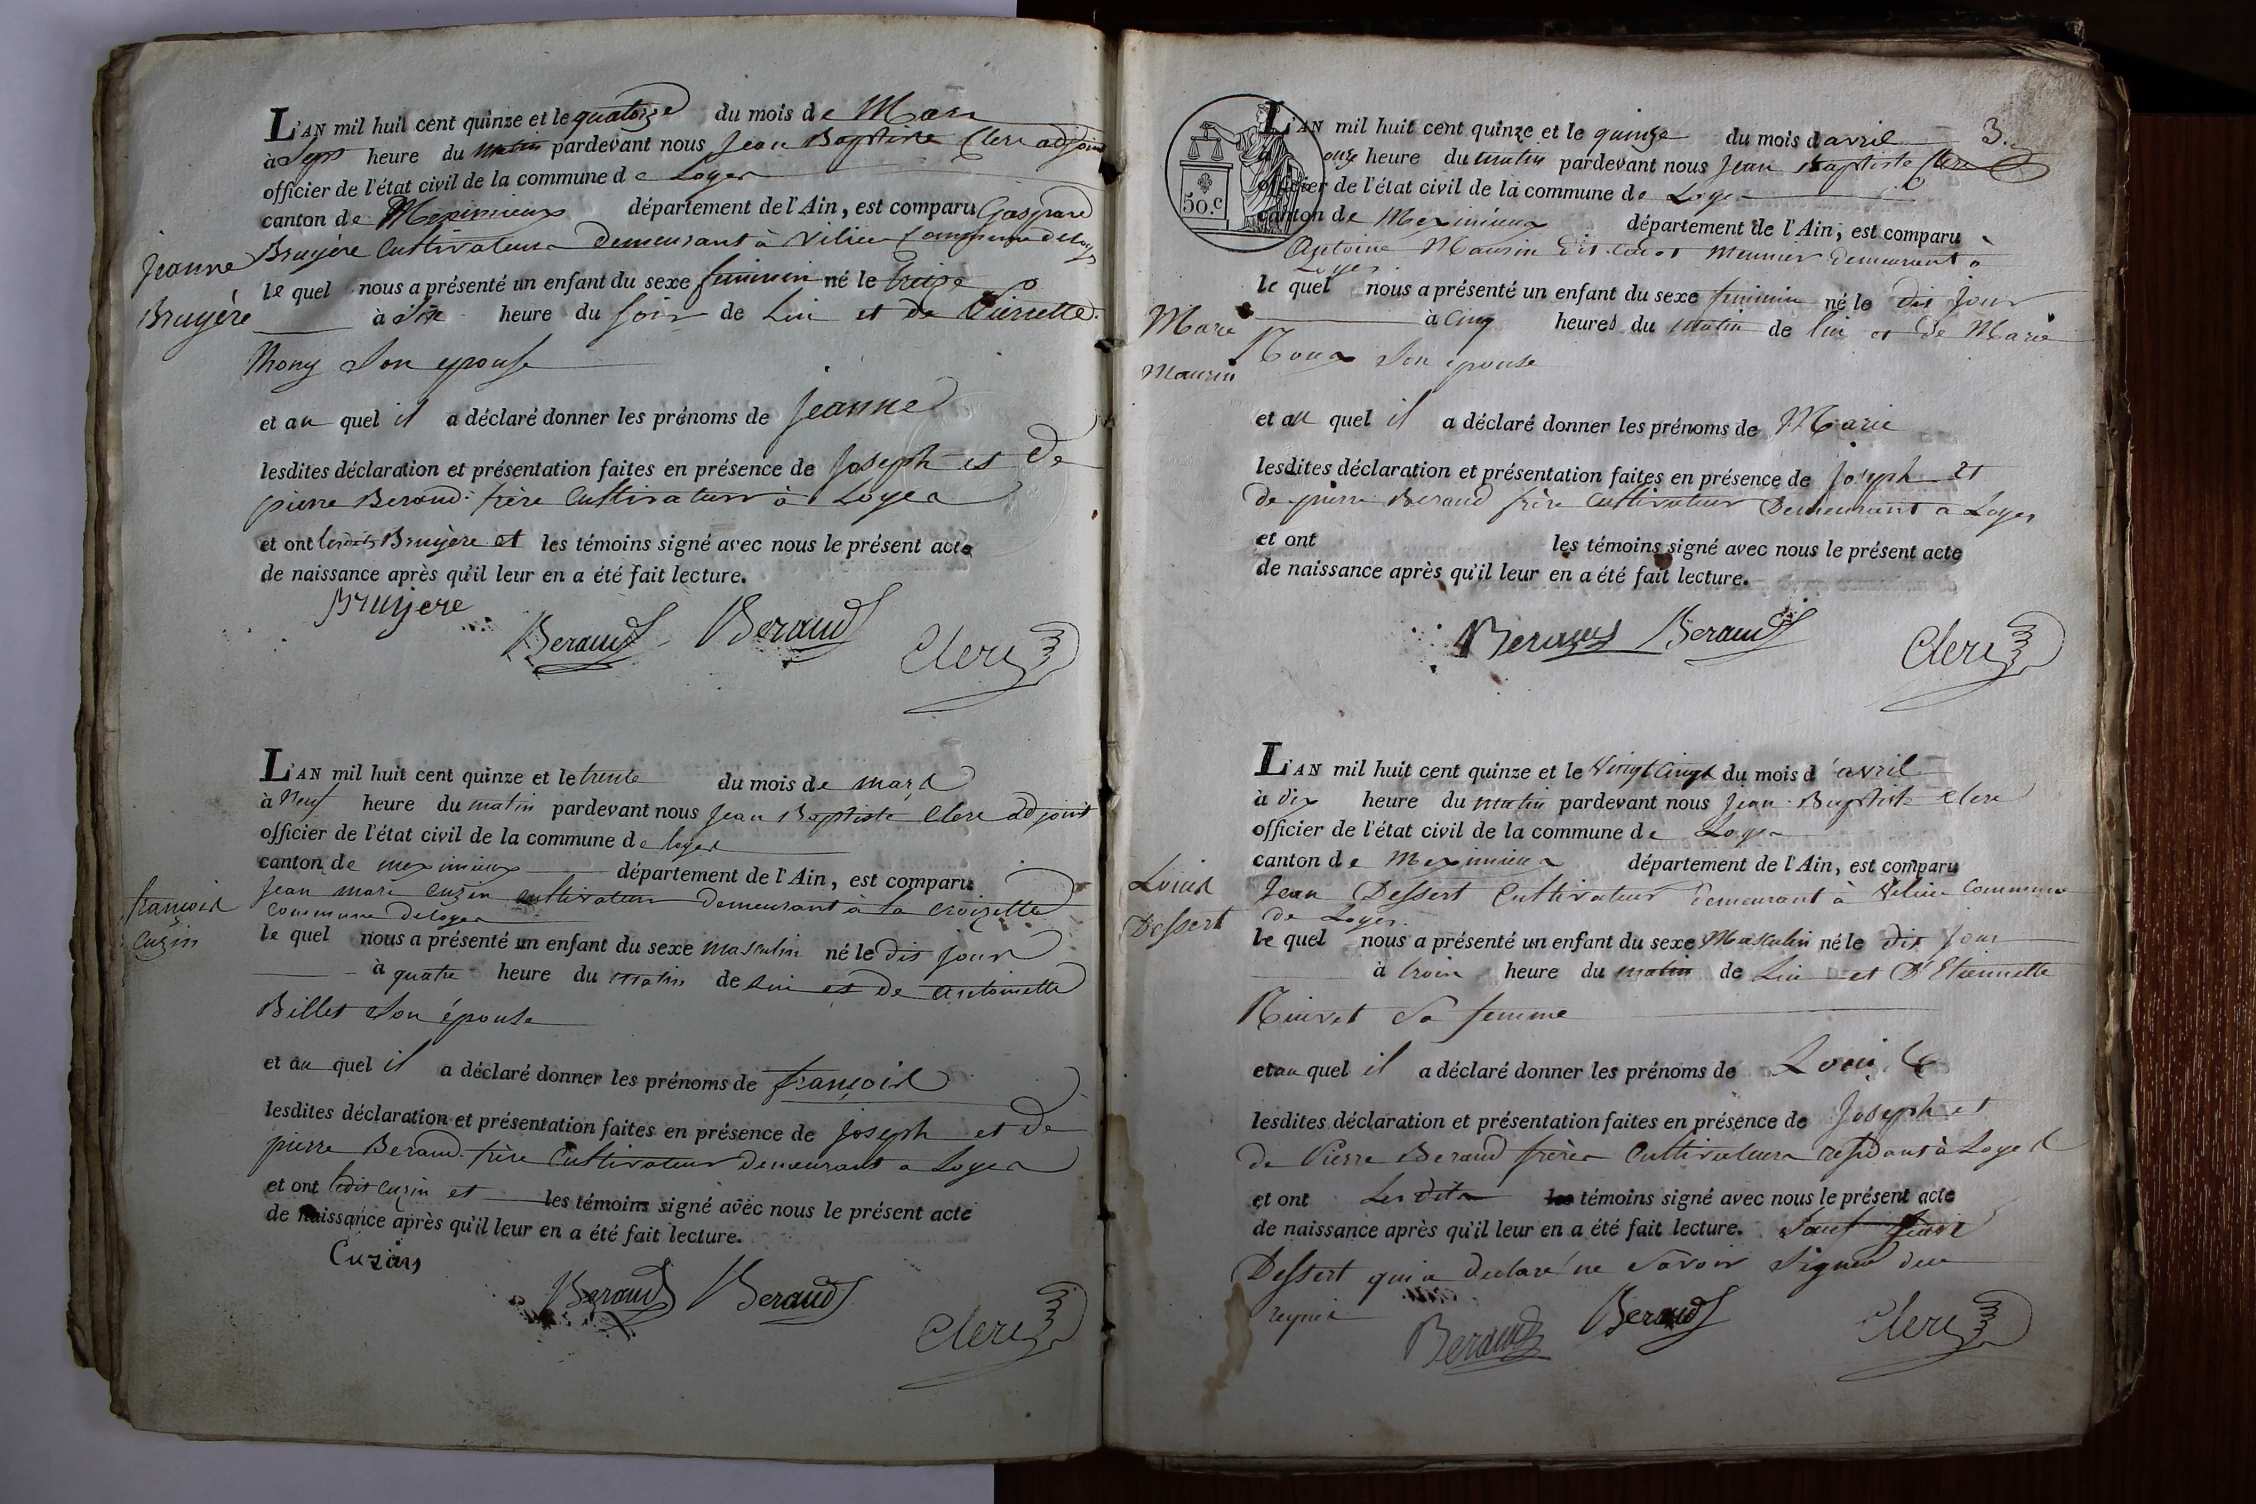 L'AN mil huit cent quinze et le quatorze du mois de Mars
à Sept heure du matin pardevant nous Jean Baptiste Clerc adjoint
officier de l'état civil de la commune de Loyes
canton de Meximieux département de l'Ain, est comparu Gaspard
Bruyère Cultivateur Demeurant à Vilieu Commune de Loyes
Jeanne
Bruyère
le quel nous a présenté un enfant du sexe feminin né le treize
à Six heure du soir de Lui et de Pierrette
Thony Son epouse
et au quel il a déclaré donner les prénoms de Jeanne
lesdites déclaration et présentation faites en présence de Joseph et de
pierre Beraud frère Cultivateur à Loyes
et ont lesdits Bruyère et les témoins signé avec nous le présent acte
de naissance après qu'il leur en a été fait lecture.
Bruyere
Beraud Beraud Clerc
L'AN mil huit cent quinze et le trente du mois de mars
à Neuf heure du matin pardevant nous Jean Baptiste Clerc adjoint
officier de l'état civil de la commune de loyes
canton de meximieux département de l'Ain, est comparu
Jean marie cuzin cultivateur demeurant à la croizette
commune de loyes
françois
Cuzin
le quel nous a présenté un enfant du sexe masculin né le dis jour
à quatre heure du matin de Lui et de antoinette
Billet Son épouse
et au quel il a déclaré donner les prénoms de françois
lesdites déclaration et présentation faites en présence de Joseph et de
pierre Beraud frère Cultivateur Demeurant a Loyes
et ont ledit cuzin et les témoins signé avec nous le présent acte
de naissance après qu'il leur en a été fait lecture.
Cuzin
Beraud Beraud
Clerc
3.
50.c
L'AN mil huit cent quinze et le quinze du mois d avril
à onze heure du matin pardevant nous Jean Baptiste Clerc
officier de l'état civil de la commune de Loyes
canton de Meximieux département de l'Ain, est comparu
Antoine Maurin dit meunier demeurant à
Loyes
Marie
Maurin
le quel nous a présenté un enfant du sexe feminin né le dis jour
à Cinq heures du matin de lui et de Marie
Roux Son épouse
et au quel il a déclaré donner les prénoms de Marie
lesdites déclaration et présentation faites en présence de Joseph et
de pierre Beraud frère Cultivateur Demeurant à Loyes
et ont les témoins signé avec nous le présent acte
de naissance après qu'il leur en a été fait lecture.
Beraud Beraud Clerc
L'AN mil huit cent quinze et le Vingt Cinq du mois d'avril
à dix heure du matin pardevant nous Jean Baptiste Clerc
officier de l'état civil de la commune de Loyes
canton de Meximieux département de l'Ain, est comparu
Jean Dessert Cultivateur demeurant à Vilieu Commune
de Loyes
Louis
Dessert
le quel nous a présenté un enfant du sexe Masculin né le dis jour
à trois heure du matin de Lui et D'Etiennette
sa femme
et au quel il a déclaré donner les prénoms de Louis
lesdites déclaration et présentation faites en présence de Joseph et
de Pierre Beraud frères Cultivateurs residant à Loyes
et ont Lesdits les témoins signé avec nous le présent acte
de naissance après qu'il leur en a été fait lecture. Sauf Jean
Dessert qui a declaré ne Savoir Signer de ce
requis
Beraud Beraud Clerc